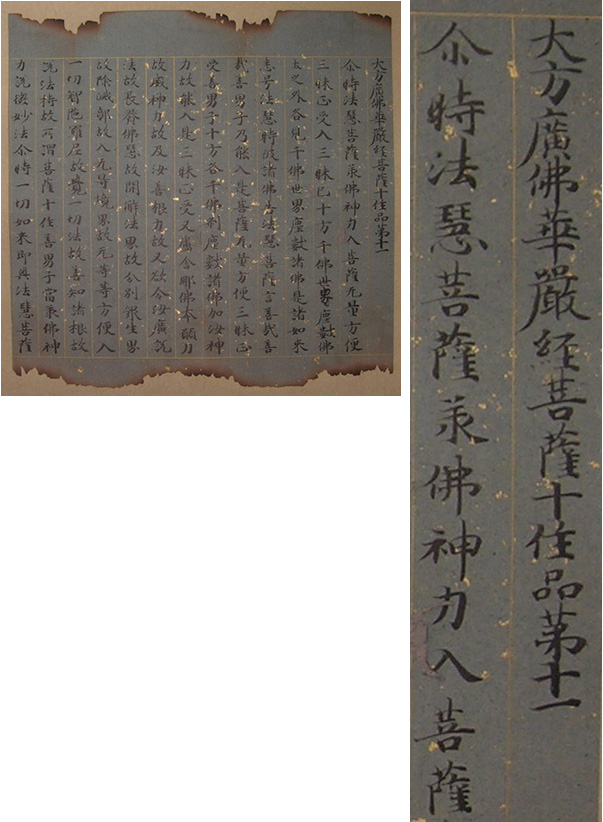 大方廣佛華嚴経菩薩十住品第十一
尒時法慧菩薩承佛神力入菩薩无量方便
三昧正受入三昧已十方千佛世界塵數佛
土之外各見千佛世界塵數諸佛是諸如来
悉号法慧時彼諸佛告法慧菩薩言善哉善
哉善男子乃能入是菩薩无量方便三昧正
受善男子十方各千佛刹塵數諸佛加汝神
力故能入是三昧正受又盧舍那佛本願力
故威神力故及汝善根力故又欲令汝廣説
法故長養佛慧故開解法界故分別衆生界
故除滅鄣故入无等境界故无等等方便入
一切智陁羅尼故覺一切法故善知諸根故
説法持故所謂菩薩十住善男子當承佛神
力説微妙法尒時一切如来即與法慧菩薩
大方廣佛華嚴経菩薩十住品第十一
尒時法慧菩薩承佛神力入菩薩